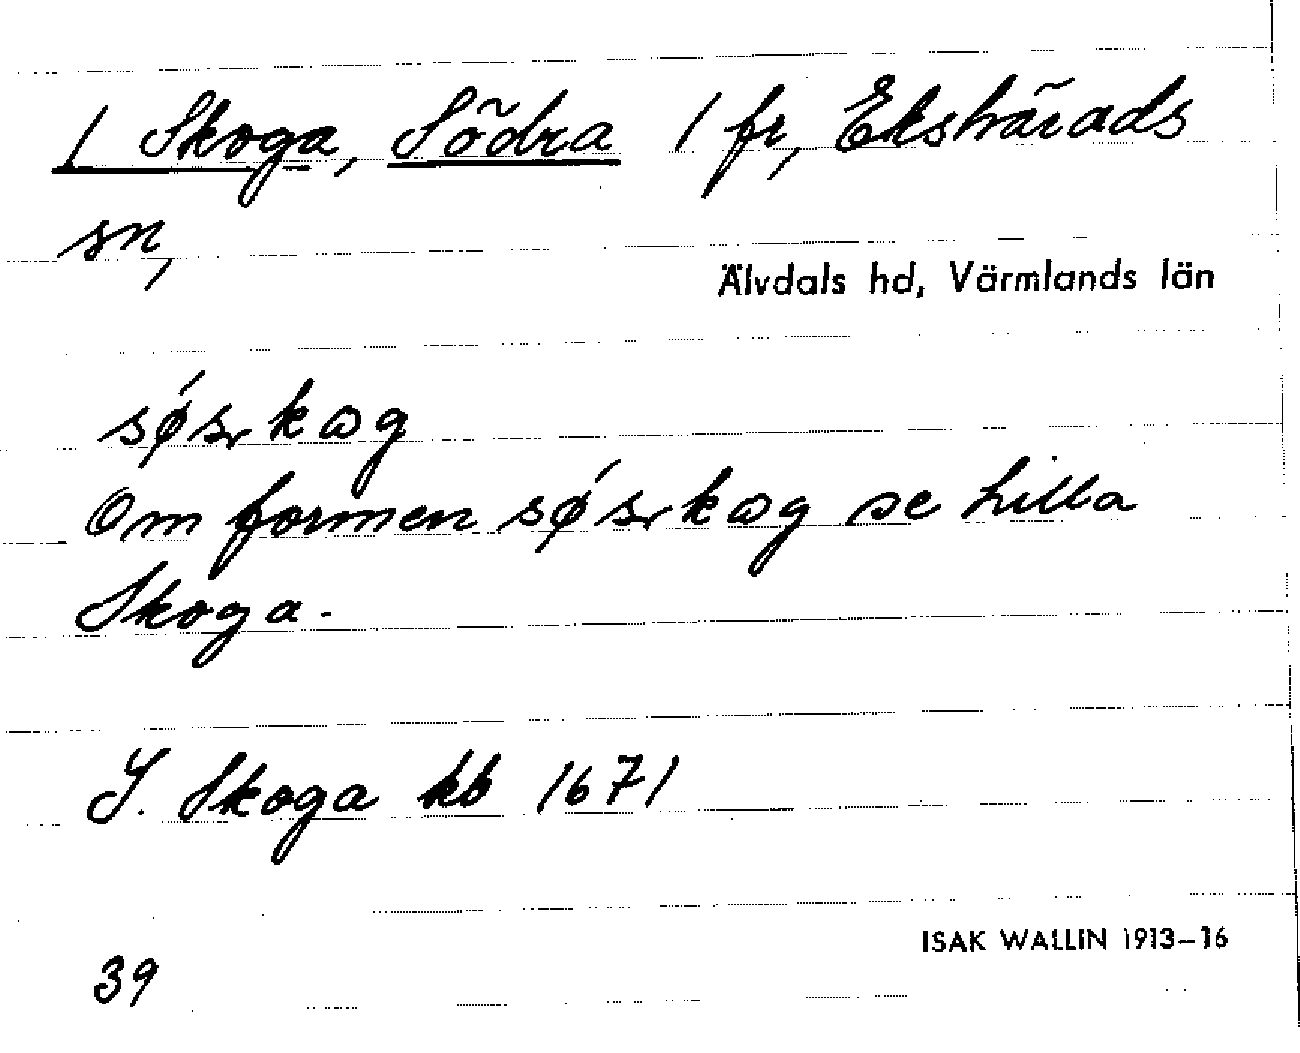 / Skoga, Södra / fr, Ekshärads
sn,
Älvdals hd, Värmlands län
sǿsꞃkωg
Om formen sǿsꞃkωg se Lilla
Skoga.
S. Skoga kb 1671
ISAK WALLIN 1913–16
39